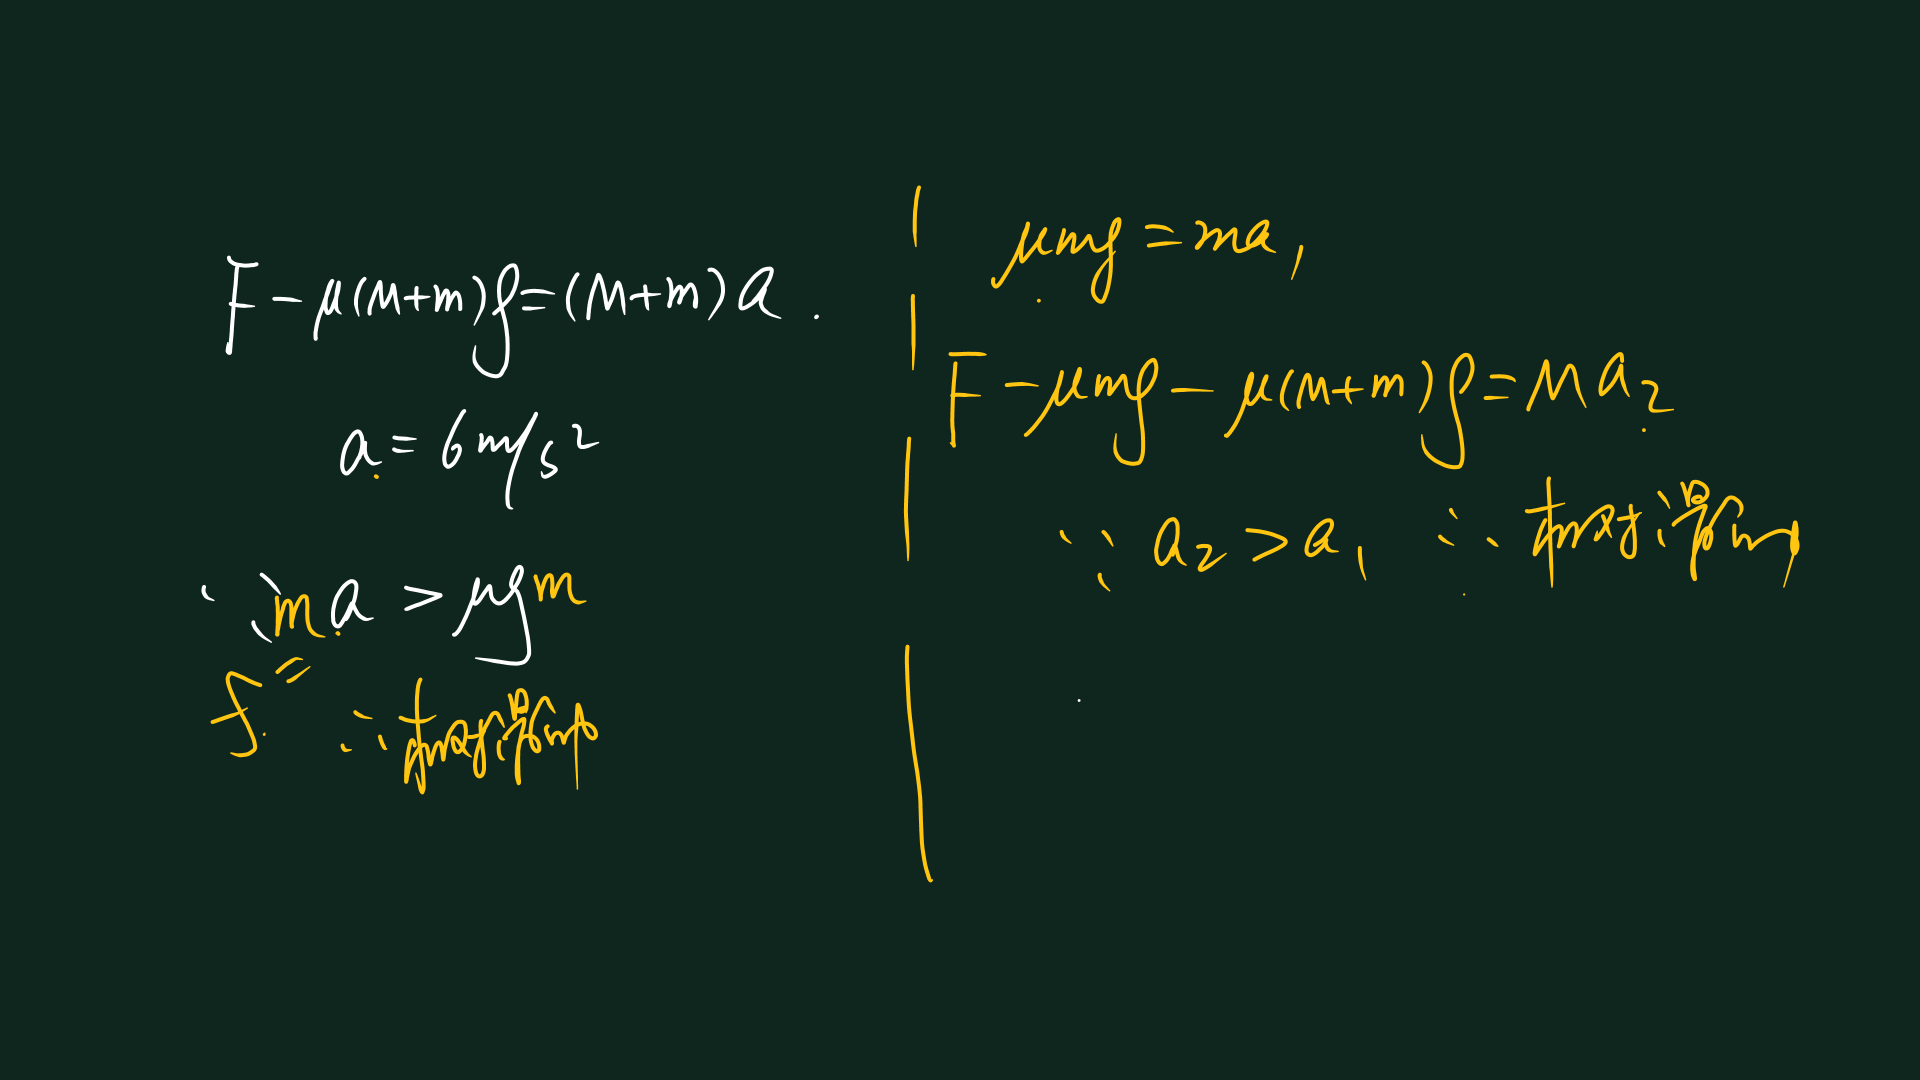 F-μ(M+m)g=(M+m)a.
a=6m/s²
∵ma>μgm
f=
∴相对滑动
μmg=ma₁
F-μmg-μ(M+m)g=Ma₂
∵a₂>a₁ ∴相对滑动